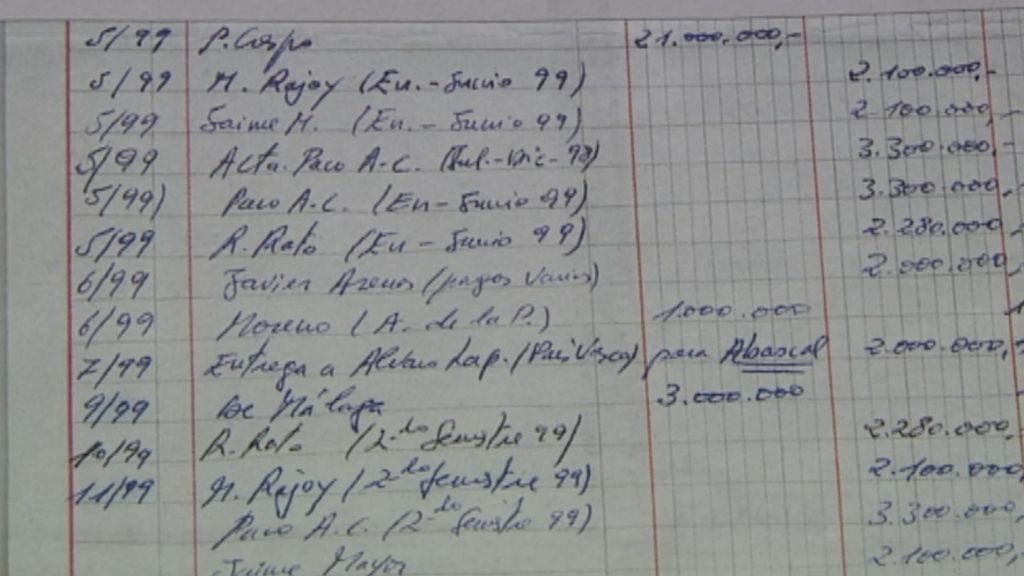 5/99 P. Crespo 21.000.000,-
5/99 M. Rajoy (En.-Junio 99) 2.100.000,-
5/99 Jaime M. (En.-Junio 99) 2.100.000,-
5/99 Acta. Paco A-C. (Jul.-Dic-98) 3.300.000,-
5/99) Paco A.C. (En-Junio 99) 3.300.000,-
5/99 R. Rato (En-Junio 99) 2.280.000,-
6/99 Javier Arenas (pagos varios) 2.000.000,-
6/99 Moreno (A. de la P.) 1.000.000
7/99 Entrega a Alvaro Lap. (País Vasco) para Abascal 2.000.000,-
9/99 De Málaga 3.000.000
10/99 R. Rato (2-do Semestre 99) 2.280.000,
11/99 M. Rajoy (2-do Semestre 99) 2.100.000,
Paco A.C. (2-do Semestre 99) 3.300.000,
Jaime Mayor 2.100.000,-